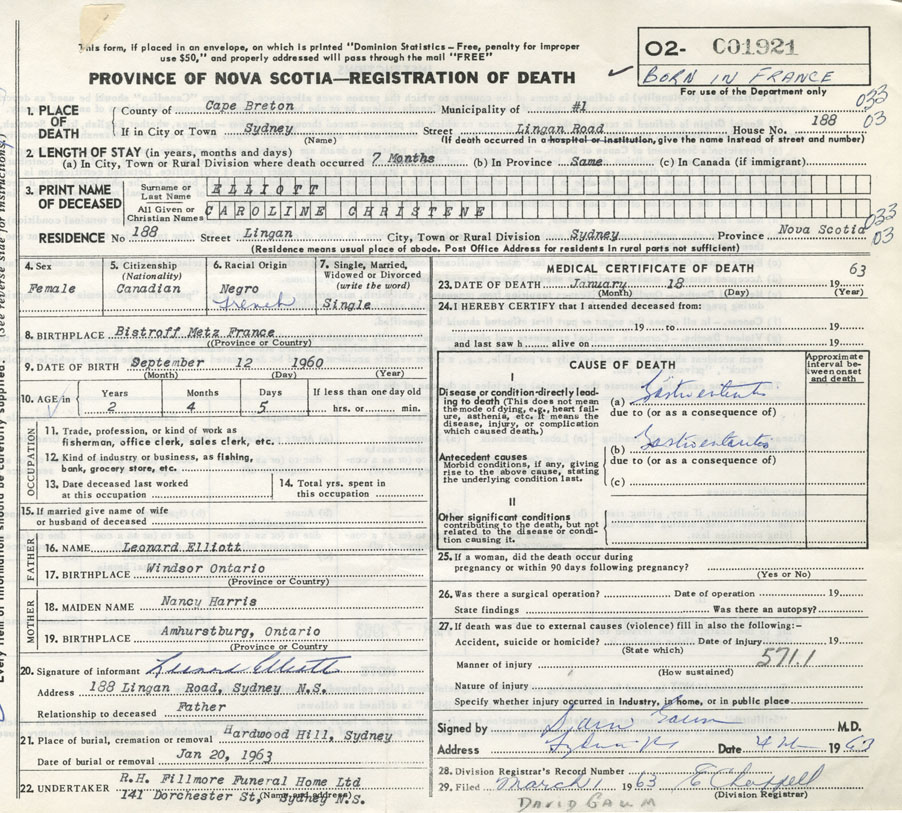 This form, if placed in an envelope, on which is printed "Dominion Statistics – Free, penalty for improper
use $50," and properly addressed will pass through the mail "FREE"
PROVINCE OF NOVA SCOTIA—REGISTRATION OF DEATH
O2- C01921
✓ BORN IN FRANCE
For use of the Department only
1. PLACE OF DEATH
County of Cape Breton Municipality of #1 033
If in City or Town Sydney Street Lingan Road House No. 188 03
(Name) (If death occurred in a hospital or institution, give the name instead of street and number)
2. LENGTH OF STAY (in years, months and days)
(a) In City, Town or Rural Division where death occurred 7 Months (b) In Province Same (c) In Canada (if immigrant)
3. PRINT NAME OF DECEASED
Surname or Last Name ELLIOTT
All Given or Christian Names CAROLINE CHRISTENE
033
RESIDENCE No 188 Street Lingan City, Town or Rural Division Sydney Province Nova Scotia 03
(Residence means usual place of abode. Post Office Address for residents in rural parts not sufficient)
4. Sex
Female
5. Citizenship
(Nationality)
Canadian
6. Racial Origin
Negro
French
7. Single, Married, Widowed or Divorced
(write the word)
Single
8. BIRTHPLACE Bistroff Metz France
(Province or Country)
9. DATE OF BIRTH September 12 1960
(Month) (Day) (Year)
10. AGE in
Years Months Days If less than one day old
2 4 5 hrs. or min.
OCCUPATION
11. Trade, profession, or kind of work as
fisherman, office clerk, sales clerk, etc.
12. Kind of industry or business, as fishing,
bank, grocery store, etc.
13. Date deceased last worked
at this occupation
14. Total yrs. spent in
this occupation
15. If married give name of wife
or husband of deceased
FATHER
16. NAME Leonard Elliott
17. BIRTHPLACE Windsor Ontario
(Province or Country)
MOTHER
18. MAIDEN NAME Nancy Harris
19. BIRTHPLACE Amhurstburg, Ontario
(Province or Country)
20. Signature of informant Leonard Elliott
Address 188 Lingan Road, Sydney N.S.
Relationship to deceased Father
21. Place of burial, cremation or removal Hardwood Hill, Sydney
Date of burial or removal Jan 20, 1963
22. UNDERTAKER R.H. Fillmore Funeral Home Ltd
141 Dorchester St, Sydney N.S.
(Name and address)
MEDICAL CERTIFICATE OF DEATH
23. DATE OF DEATH January 18 19 63
(Month) (Day) (Year)
24. I HEREBY CERTIFY that I attended deceased from:
19 to 19
and last saw h alive on 19
CAUSE OF DEATH
Approximate interval between onset and death
I
Disease or condition directly leading to death (This does not mean the mode of dying, e.g., heart failure, asthenia, etc. It means the disease, injury, or complication which caused death.)
(a)
due to (or as a consequence of)
Antecedent causes
Morbid conditions, if any, giving rise to the above cause, stating the underlying condition last.
(b)
due to (or as a consequence of)
(c)
II
Other significant conditions
contributing to the death, but not related to the disease or condition causing it.
25. If a woman, did the death occur during
pregnancy or within 90 days following pregnancy?
(Yes or No)
26. Was there a surgical operation? Date of operation 19
State findings Was there an autopsy?
27. If death was due to external causes (violence) fill in also the following:–
Accident, suicide or homicide? Date of injury 19
(State which)
Manner of injury 571.1
(How sustained)
Nature of injury
Specify whether injury occurred in industry, in home, or in public place
Signed by M.D.
Address Date 19 63
28. Division Registrar's Record Number
29. Filed March 1 1963
(Division Registrar)
DAVID GAUM
(See reverse side for instructions)